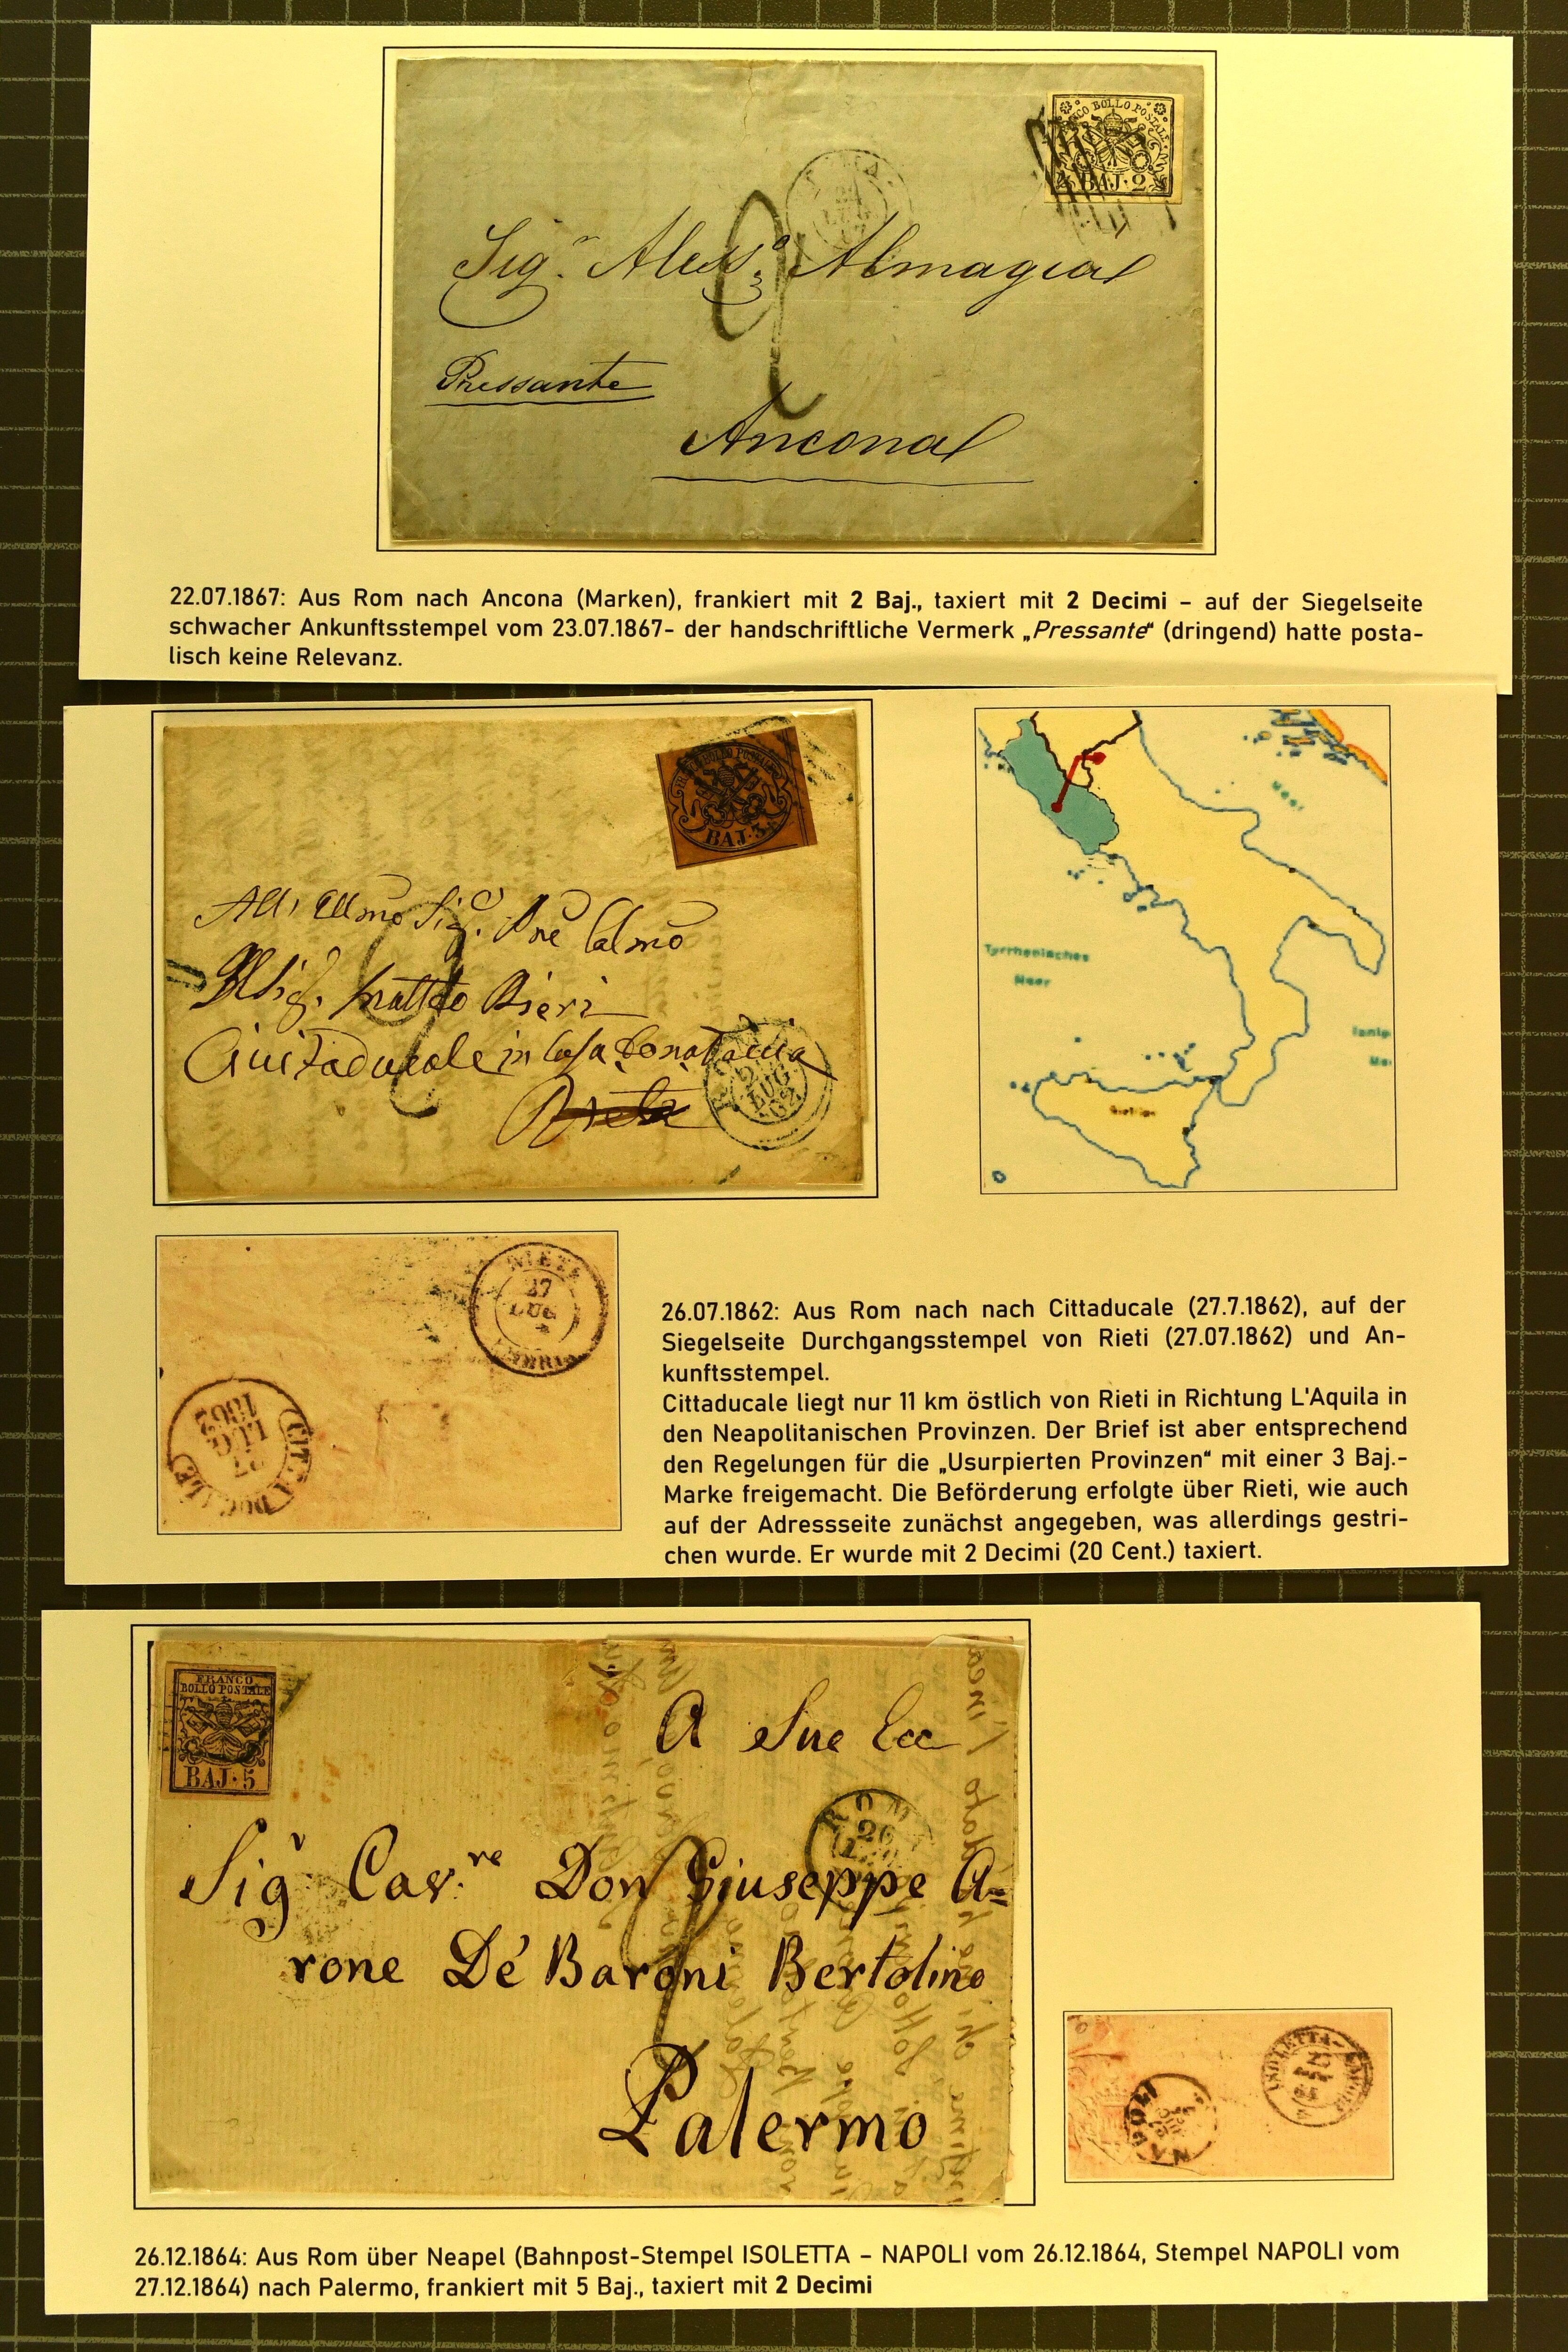 FRANCO BOLLO POSTALE
BAJ·2
LUG
Sig.r Aless.o Almagià
2
Pressante
Ancona
22.07.1867: Aus Rom nach Ancona (Marken), frankiert mit 2 Baj., taxiert mit 2 Decimi – auf der Siegelseite
schwacher Ankunftsstempel vom 23.07.1867- der handschriftliche Vermerk „Pressante“ (dringend) hatte posta-
lisch keine Relevanz.
BOLLO POSTALE
BAJ·3
Sig.
Matteo
Civitaducale in Casa Donatuccia
2
ROMA
LUG
62
Tyrrhenisches
Meer
Meer
RIETI
27
LUG
UMBRIA
CITTA DUCALE
27
LUG
1862
26.07.1862: Aus Rom nach nach Cittaducale (27.7.1862), auf der
Siegelseite Durchgangsstempel von Rieti (27.07.1862) und An-
kunftsstempel.
Cittaducale liegt nur 11 km östlich von Rieti in Richtung L'Aquila in
den Neapolitanischen Provinzen. Der Brief ist aber entsprechend
den Regelungen für die „Usurpierten Provinzen“ mit einer 3 Baj.-
Marke freigemacht. Die Beförderung erfolgte über Rieti, wie auch
auf der Adressseite zunächst angegeben, was allerdings gestri-
chen wurde. Er wurde mit 2 Decimi (20 Cent.) taxiert.
FRANCO
BOLLO POSTALE
BAJ·5
A Sue Ecc
ROMA
26
Sigr Cav.re Don Giuseppe A=
rone De' Baroni Bertolino
2
Palermo
ISOLETTA-NAPOLI
NAPOLI
26.12.1864: Aus Rom über Neapel (Bahnpost-Stempel ISOLETTA – NAPOLI vom 26.12.1864, Stempel NAPOLI vom
27.12.1864) nach Palermo, frankiert mit 5 Baj., taxiert mit 2 Decimi